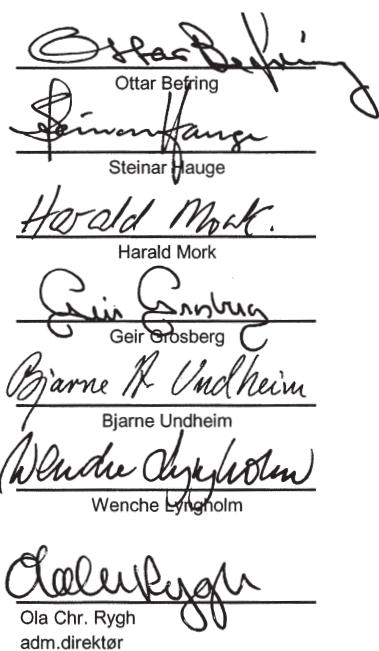 Ottar Befring
Ottar Befring
Steinar Hauge
Steinar Hauge
Harald Mork.
Harald Mork
Geir Grosberg
Geir Grosberg
Bjarne A Undheim
Bjarne Undheim
Wenche Lyngholm
Wenche Lyngholm
Ola Chr Rygh
Ola Chr. Rygh
adm.direktør